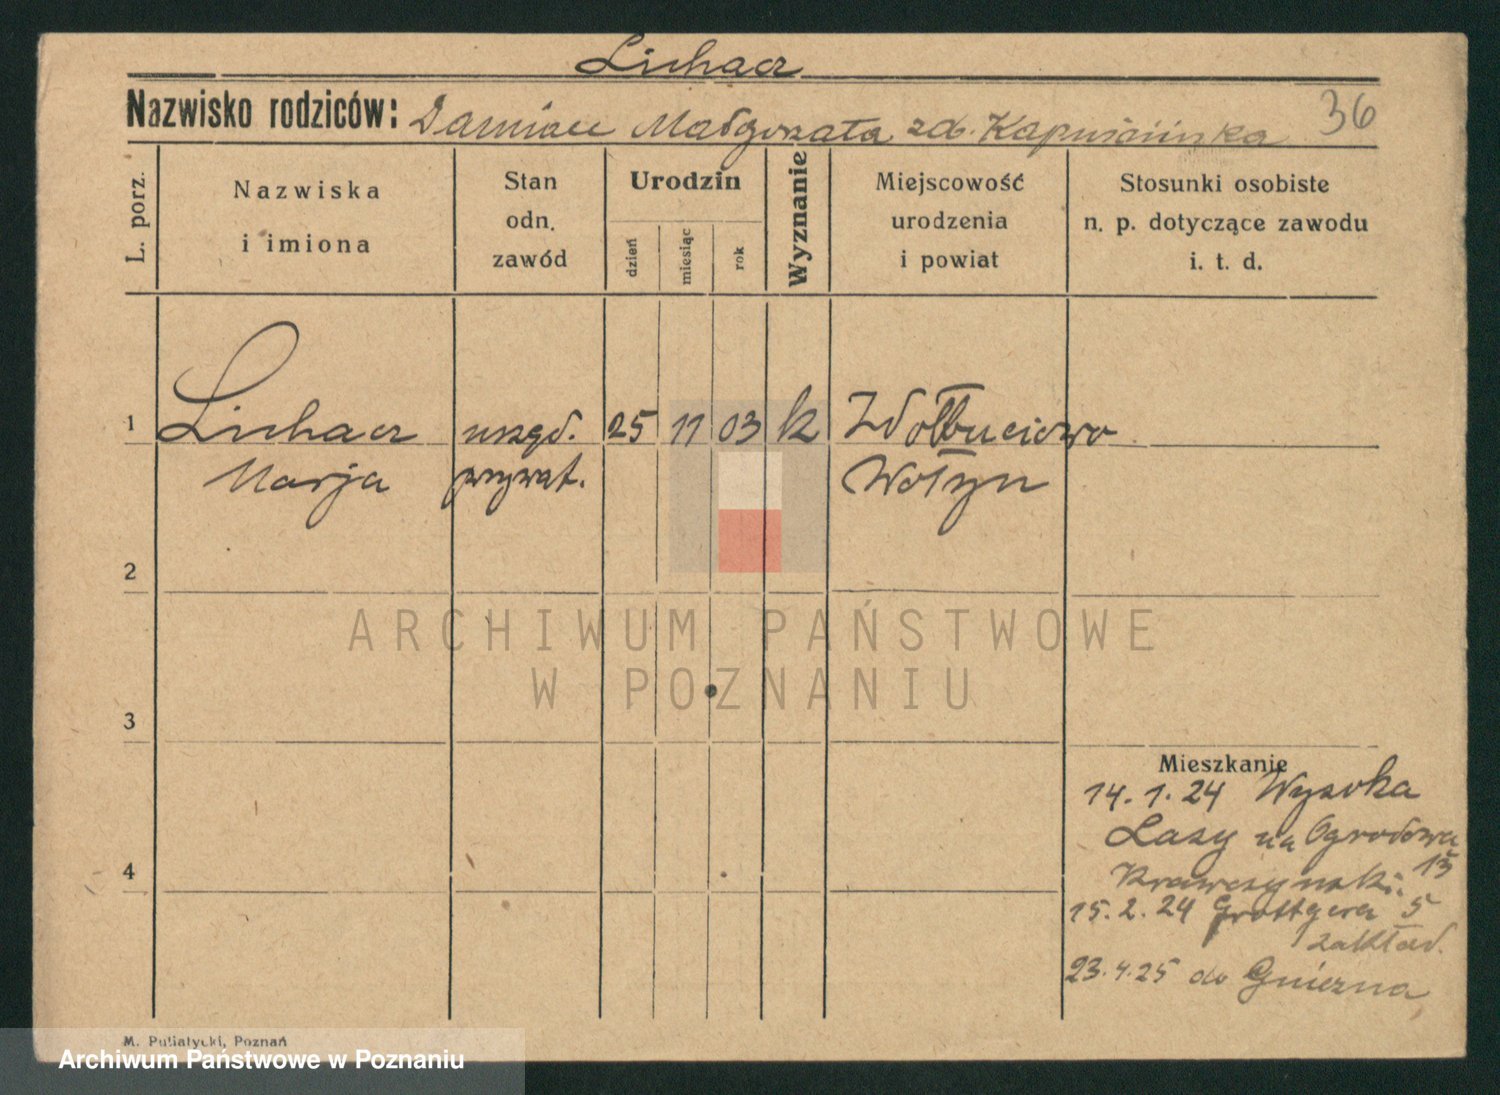 Lichacz
Nazwisko rodziców: Damian Małgorzata zd. Kapuścińska 36
L. porz.
Nazwiska
i imiona
Stan
odn.
zawód
Urodzin
dzień
miesiąc
rok
Wyznanie
Miejscowość
urodzenia
i powiat
Stosunki osobiste
n. p. dotyczące zawodu
i. t. d.
1 Lichacz urzęd. 25 11 03 k Zdołbuciowo
Marja prywat. Wołyn
2
ARCHIWUM PAŃSTWOWE
W POZNANIU
3
Mieszkanie
14. 1. 24 Wysoka
Lasy na Ogrodowa
4
Krawczynski. 13
15. 2. 24 Grottgera 5
zakład.
23. 4. 25 do Gniezna
M. Putiatycki, Poznań
Archiwum Państwowe w Poznaniu